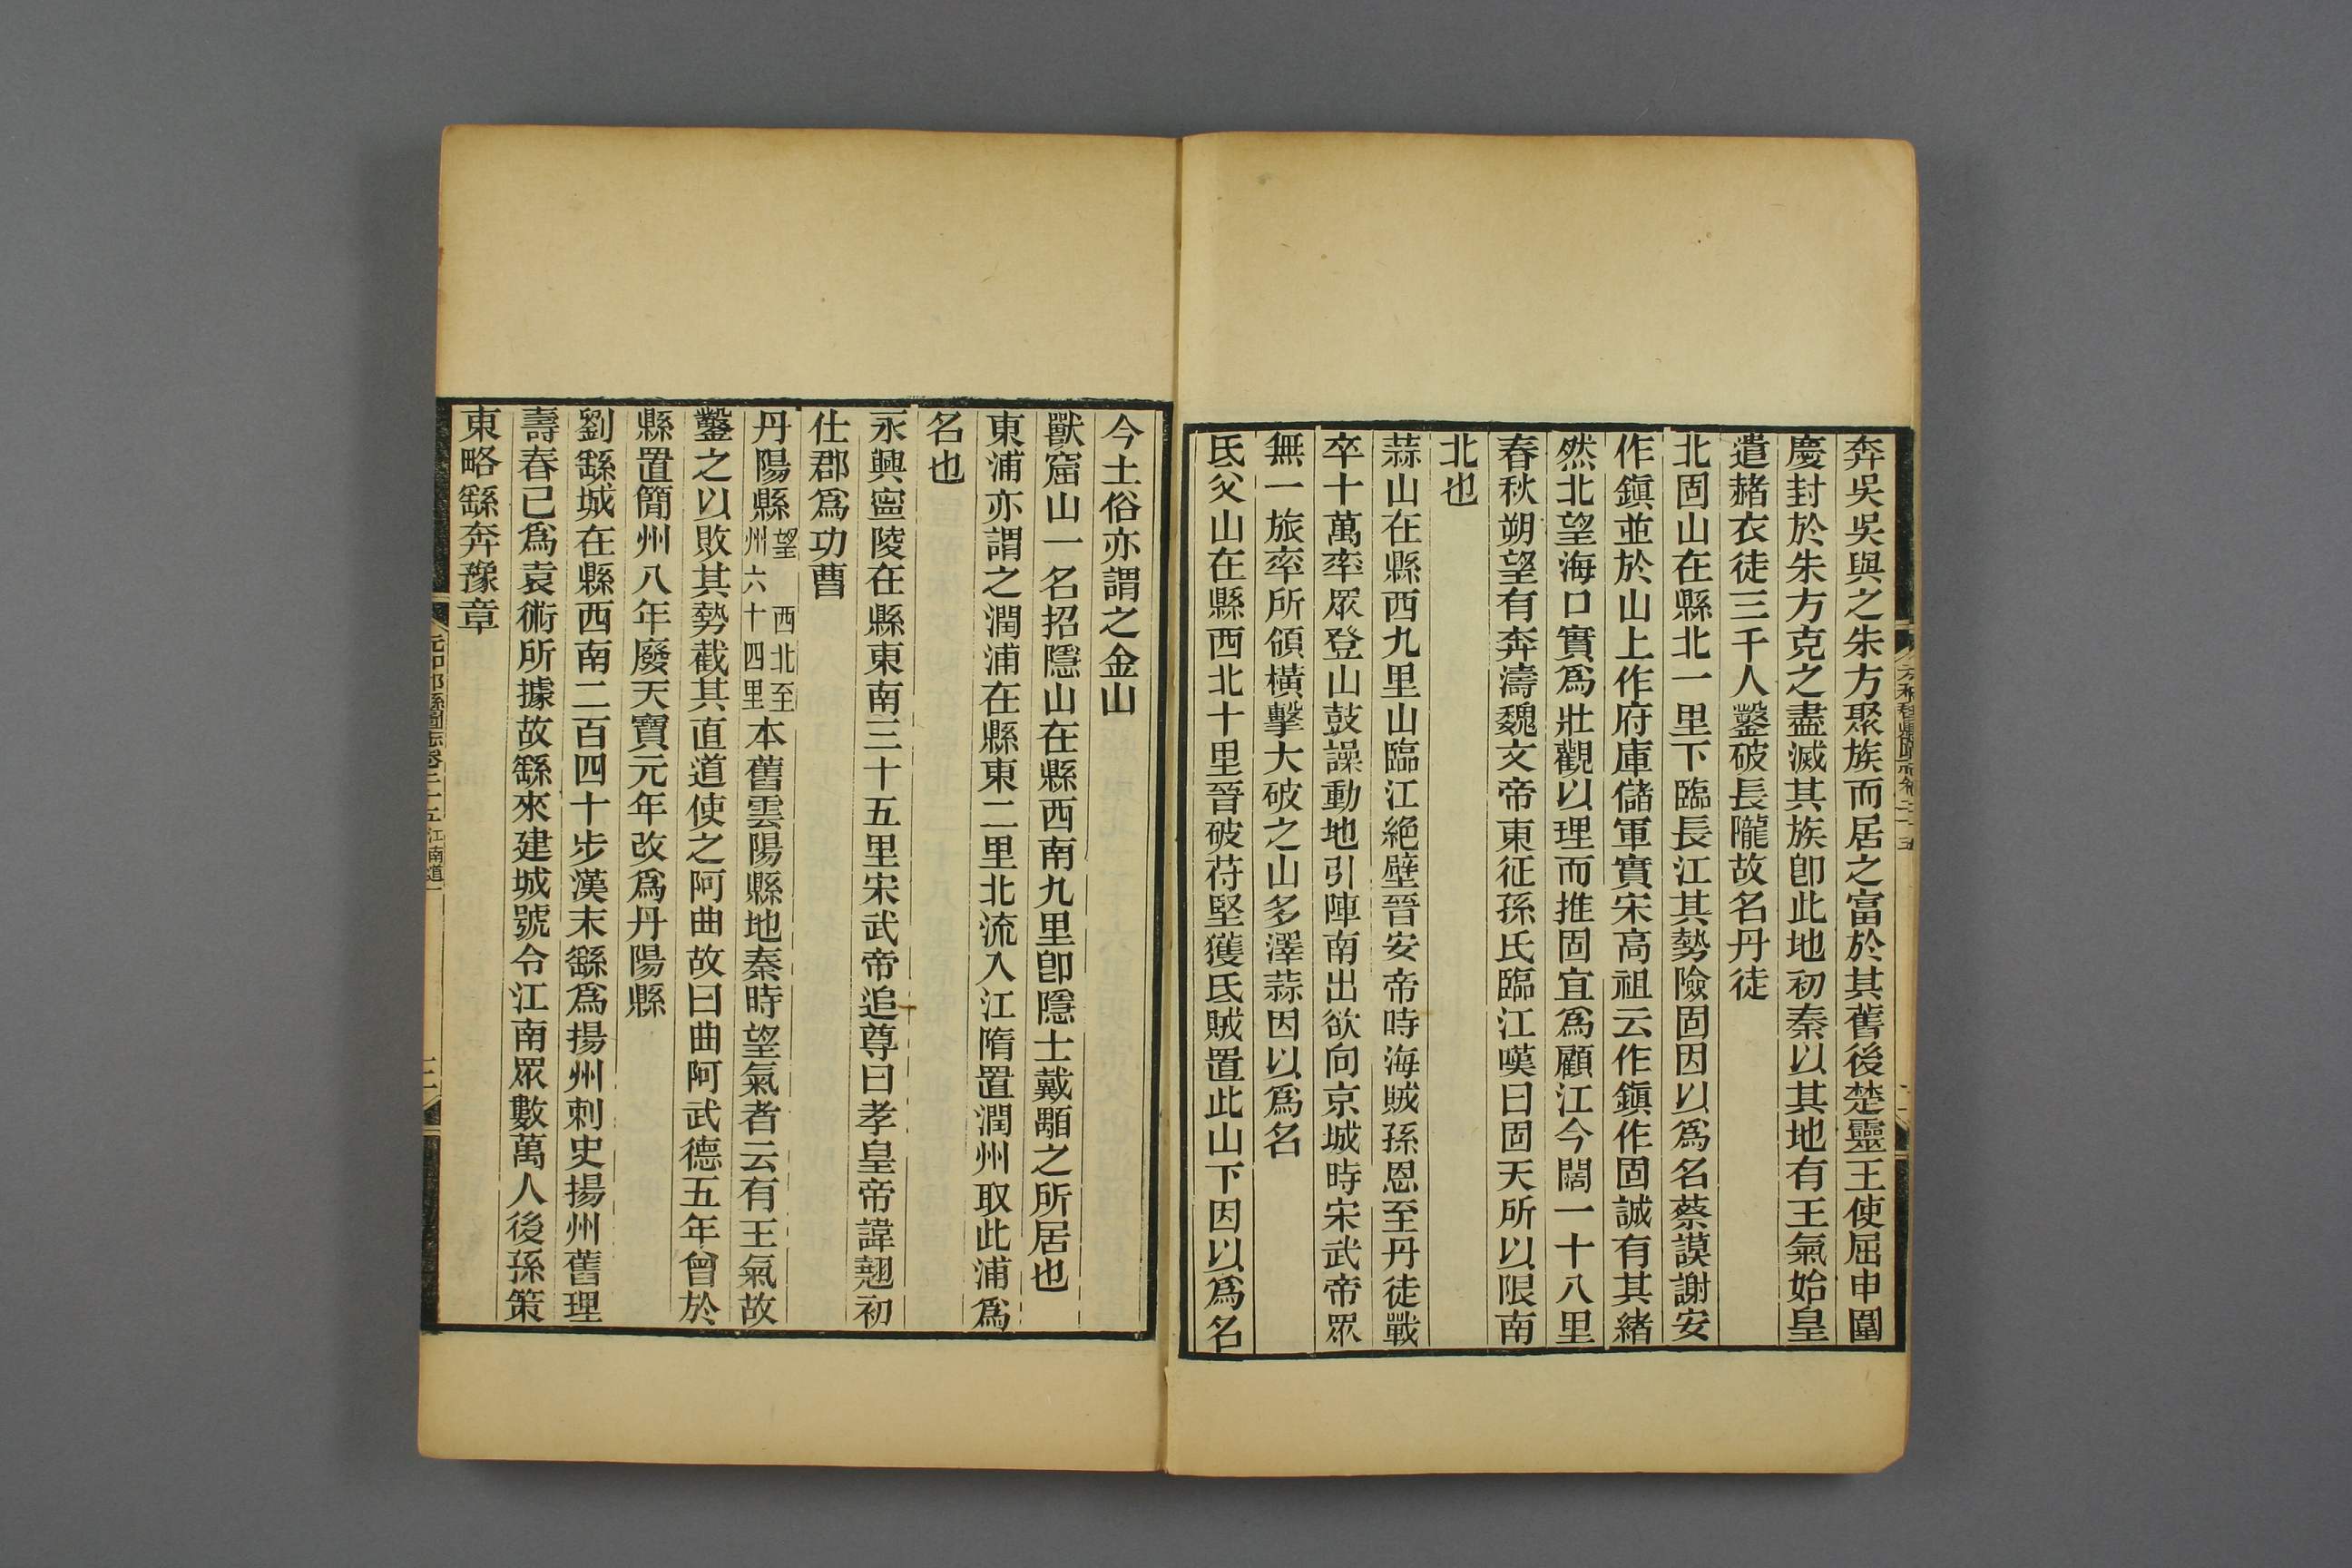 奔吳吳與之朱方聚族而居之富於其舊後楚靈王使屈申圍
慶封於朱方克之盡滅其族卽此地初秦以其地有王氣始皇
遣赭衣徒三千人鑿破長隴故名丹徒
北固山在縣北一里下臨長江其勢險固因以爲名蔡謨謝安
作鎭並於山上作府庫儲軍實宋高祖云作鎭作固誠有其緒
然北望海口實爲壯觀以理而推固宜爲顧江今闊一十八里
春秋朔望有奔濤魏文帝東征孫氏臨江嘆曰固天所以限南
北也
蒜山在縣西九里山臨江絶壁晉安帝時海賊孫恩至丹徒戰
卒十萬率眾登山鼓譟動地引陣南出欲向京城時宋武帝眾
無一旅率所領橫擊大破之山多澤蒜因以爲名
氐父山在縣西北十里晉破苻堅獲氐賊置此山下因以爲名
今土俗亦謂之金山
獸窟山一名招隱山在縣西南九里卽隱士戴顒之所居也
東浦亦謂之潤浦在縣東二里北流入江隋置潤州取此浦爲
名也
永興寧陵在縣東南三十五里宋武帝追尊曰孝皇帝諱翹初
仕郡爲功曹
丹陽縣望 西北至州六十四里本舊雲陽縣地秦時望氣者云有王氣故
鑿之以敗其勢截其直道使之阿曲故曰曲阿武德五年曾於
縣置簡州八年廢天寶元年改爲丹陽縣
劉繇城在縣西南二百四十步漢末繇爲揚州刺史揚州舊理
壽春已爲袁術所據故繇來建城號令江南眾數萬人後孫策
東略繇奔豫章
元和郡縣圖志卷二十五 江南道一